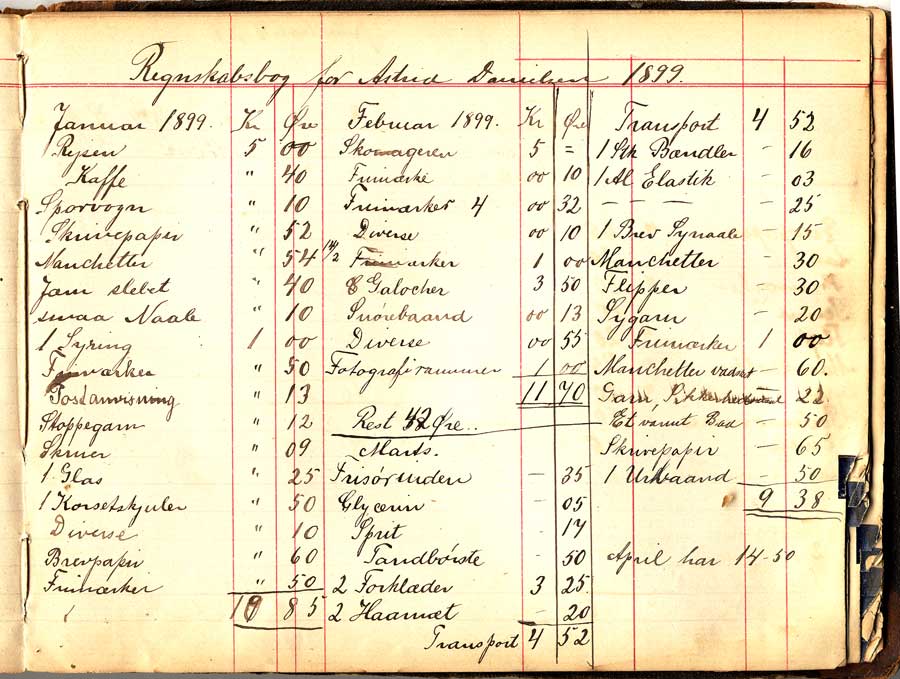 Regnskabsbog for Astrid Danielsen 1899.
Januar 1899. Kr Øre
Rejsen 5 00
Kaffe " 40
Sporvogn " 10
Skrivepapir " 52
Manchetter " 54
Jam slebet " 40
smaa Naale " 10
1 Syring 1 00
Frimærker " 50
Postanvisning " 13
Stoppegarn " 12
Skruer " 09
1 Glas " 25
1 Korsetskjuler " 50
Diverse " 10
Brevpapir " 60
Frimærker " 50
85
Februar 1899. Kr Øre
Skomageren 5 =
Frimærke 00 10
Frimærker 4 00 32
Diverse 00 10
14/2 Frimærker 1 00
Galocher 3 50
Snørebaand 00 13
Diverse 00 55
Fotografirammer 1 00
11 70
Rest 42 Øre..
Marts.
Frisørinden - 35
Glycerin - 05
Sprit - 17
Tandbørste - 50
2 Forklæder 3 25
2 Haarnæt - 20
Transport 4 52
Transport 4 52
1 Stk Bændler - 16
1 Al Elastik - 03
- - - - 25
1 Brev Synaale - 15
Manchetter - 30
Flipper - 30
Sygarn - 20
Frimærker 1 00
Manchetter vadsket - 60.
Garn, - 22
Et varmt Bad - 50
Skrivepapir - 65
1 Urbaand - 50
9 38
April har 14-50